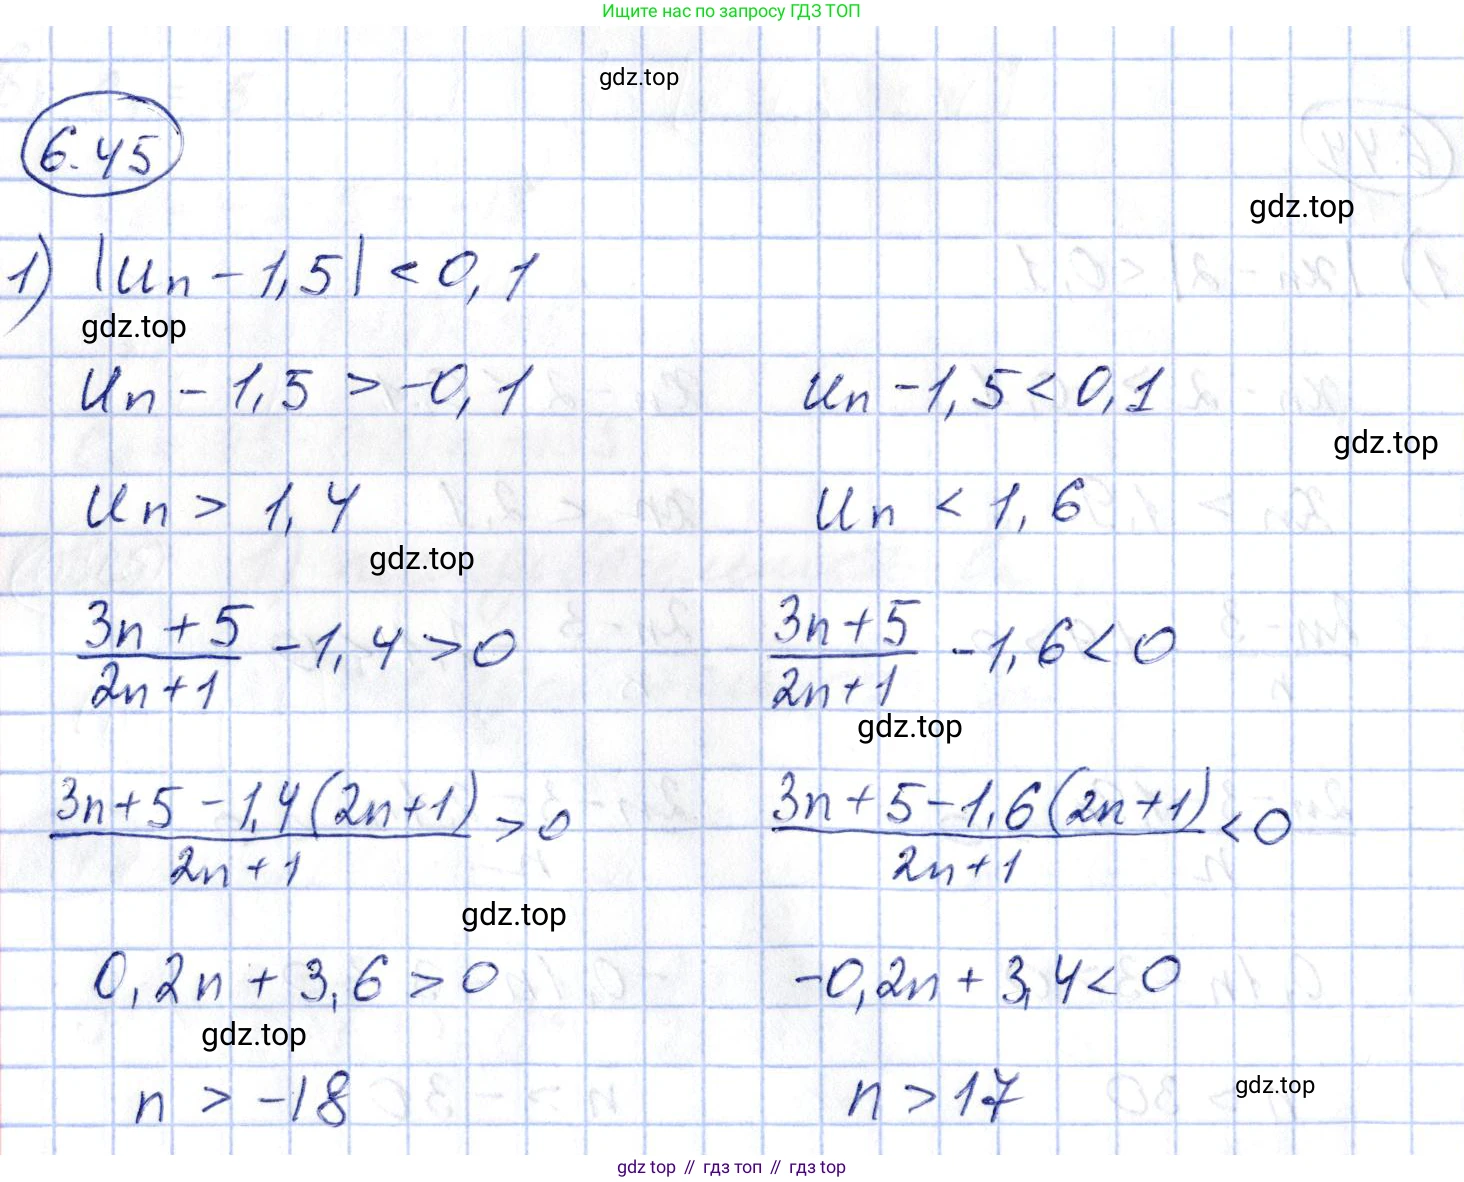 Ищите нас по запросу ГДЗ ТОП
gdz.top
6.45
gdz.top
1) |Un - 1,5| < 0,1
gdz.top
Un - 1,5 > -0,1    Un - 1,5 < 0,1
gdz.top
Un > 1,4    Un < 1,6
gdz.top
(3n + 5)/(2n + 1) - 1,4 > 0    (3n + 5)/(2n + 1) - 1,6 < 0
gdz.top
(3n + 5 - 1,4(2n + 1))/(2n + 1) > 0    (3n + 5 - 1,6(2n + 1))/(2n + 1) < 0
gdz.top
0,2n + 3,6 > 0    -0,2n + 3,4 < 0
gdz.top
n > -18    n > 17
gdz.top
gdz top // гдз топ // гдз top